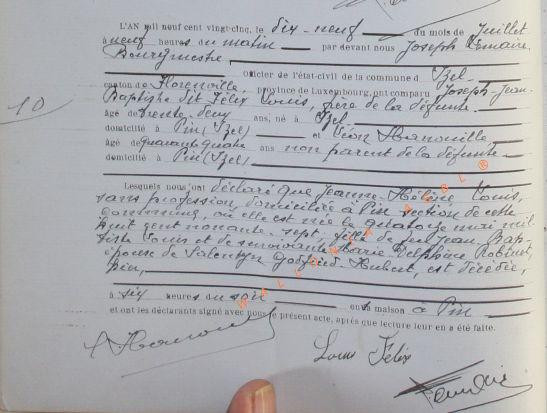 L'AN mil neuf cent vingt-cinq, le dix-neuf du mois de Juillet
à neuf heures du matin par devant nous Joseph Lemaire
Bourgmestre, officier de l'état-civil de la commune d'Izel
canton de Florenville, province de Luxembourg, ont comparu Joseph-Jean-
Baptiste dit Félix Louis, frère de la défunte
âgé de trente-deux ans, né à Izel
domicilié à Pin (Izel) et Léon Hanouille
âgé de quarante quatre ans non parent de la défunte
domicilié à Pin (Izel)
10
Lesquels nous ont déclaré que Jeanne-Hélène Louis,
sans profession, domiciliée à Pin section de cette
commune, où elle est née le quatorze mai mil
huit cent nonante-sept, fille de feu Jean Bap-
tiste Louis et de survivante Marie Delphine Robinet,
épouse de Godfrid-Hubert, est décédée,
hier,
à six heures du soir en sa maison à Pin
et ont les déclarants signé avec nous le présent acte, après que lecture leur en a été faite.
Louis Félix
WALLONICA.BL®